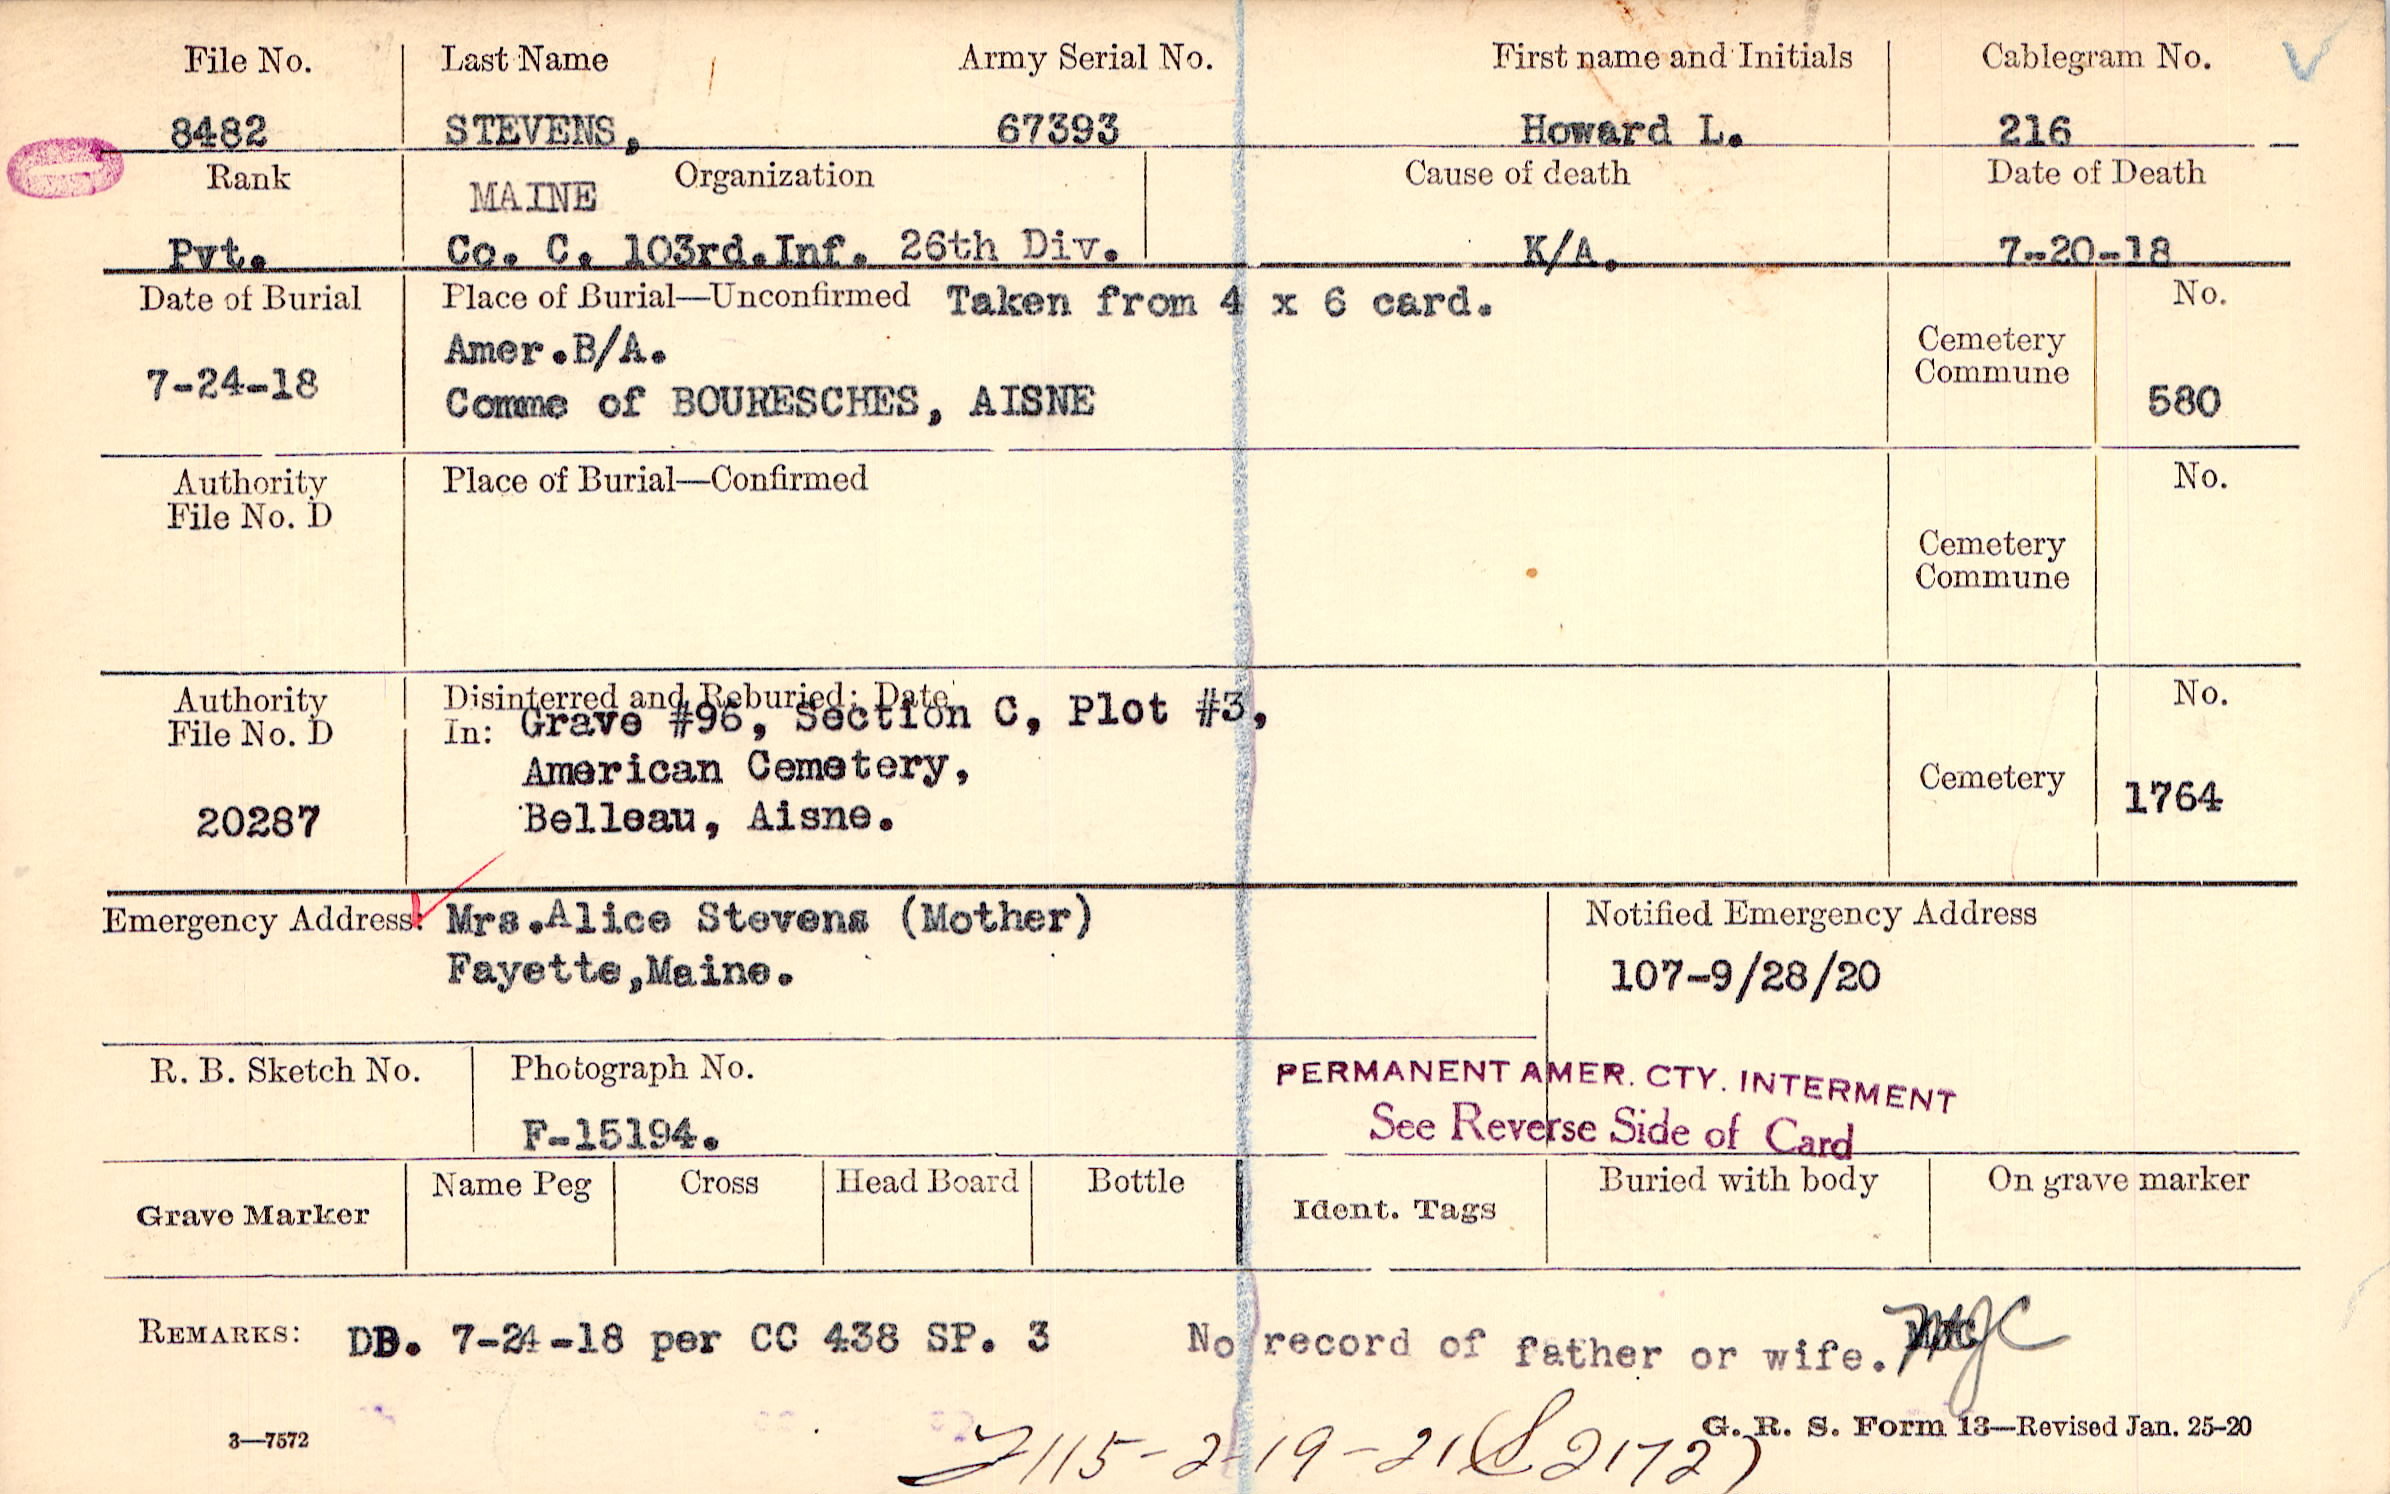 File No. Last Name Army Serial No. First name and Initials Cablegram No.
8482 STEVENS, 67393 Howard L. 216
Rank MAINE Organization Cause of death Date of Death
Pvt. Co. C. 103rd.Inf. 26th Div. K/A. 7-20-18
Date of Burial Place of Burial—Unconfirmed Taken from 4 x 6 card. No.
Amer.B/A. Cemetery
7-24-18 Comme of BOURESCHES, AISNE Commune 580
Authority Place of Burial—Confirmed No.
File No. D
Cemetery
Commune
Authority Disinterred and Reburied: Date No.
File No. D In: Grave #96, Section C, Plot #3,
American Cemetery, Cemetery
20287 Belleau, Aisne. 1764
Emergency Address: Mrs.Alice Stevens (Mother) Notified Emergency Address
Fayette,Maine. 107-9/28/20
R. B. Sketch No. Photograph No. PERMANENT AMER. CTY. INTERMENT
F-15194. See Reverse Side of Card
Name Peg Cross Head Board Bottle Buried with body On grave marker
Grave Marker Ident. Tags
REMARKS: DB. 7-24-18 per CC 438 SP. 3 No record of father or wife.
3—7572 G. R. S. Form 13—Revised Jan. 25-20
115-2-19-21